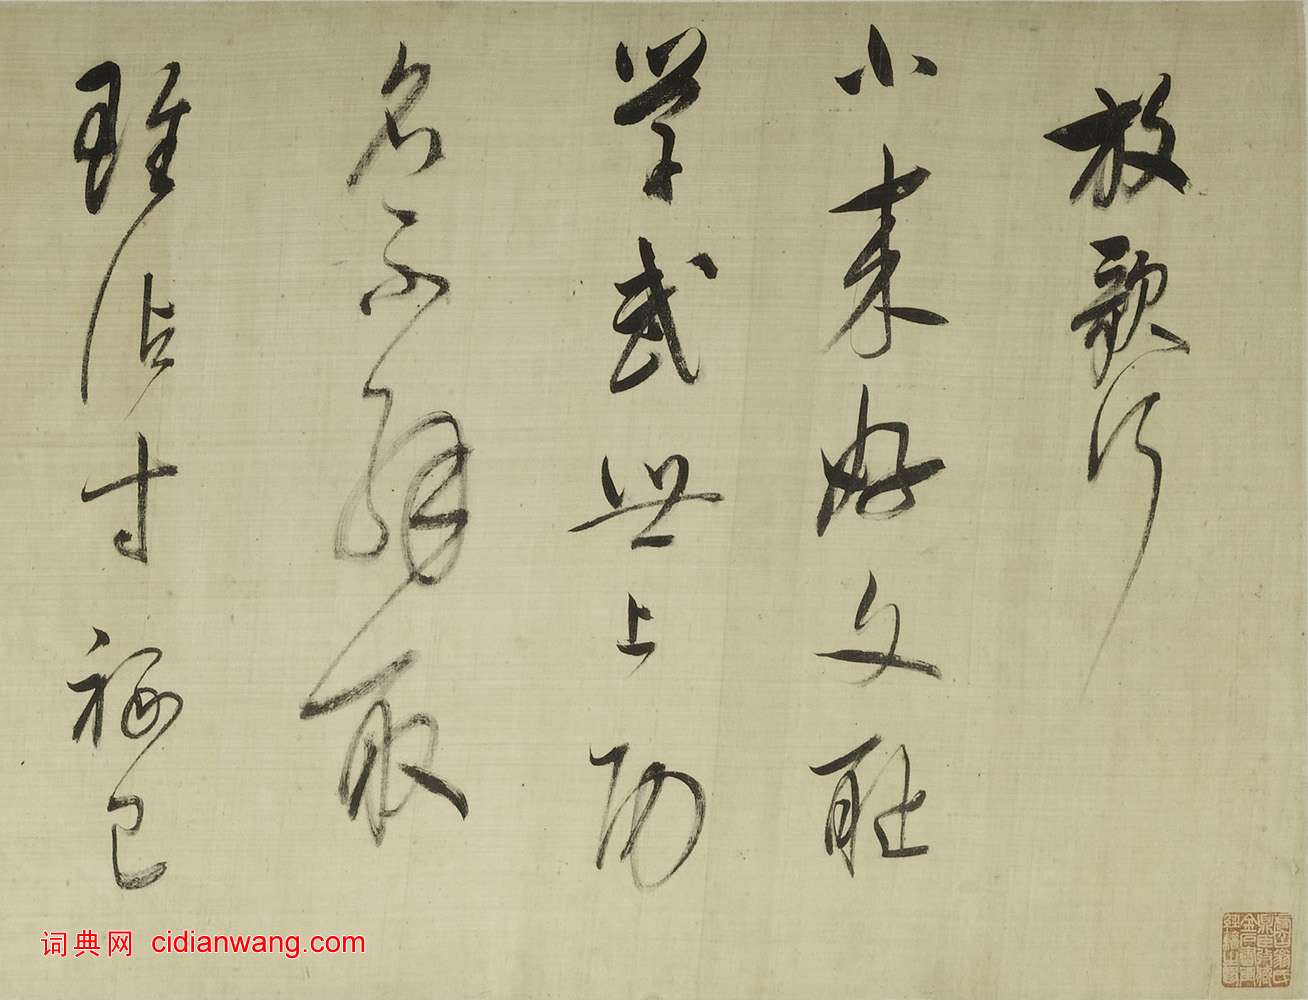 放歌行
小来好文耻
学武世上功
名不解取
虽沾寸禄已
词典网 cidianwang.com